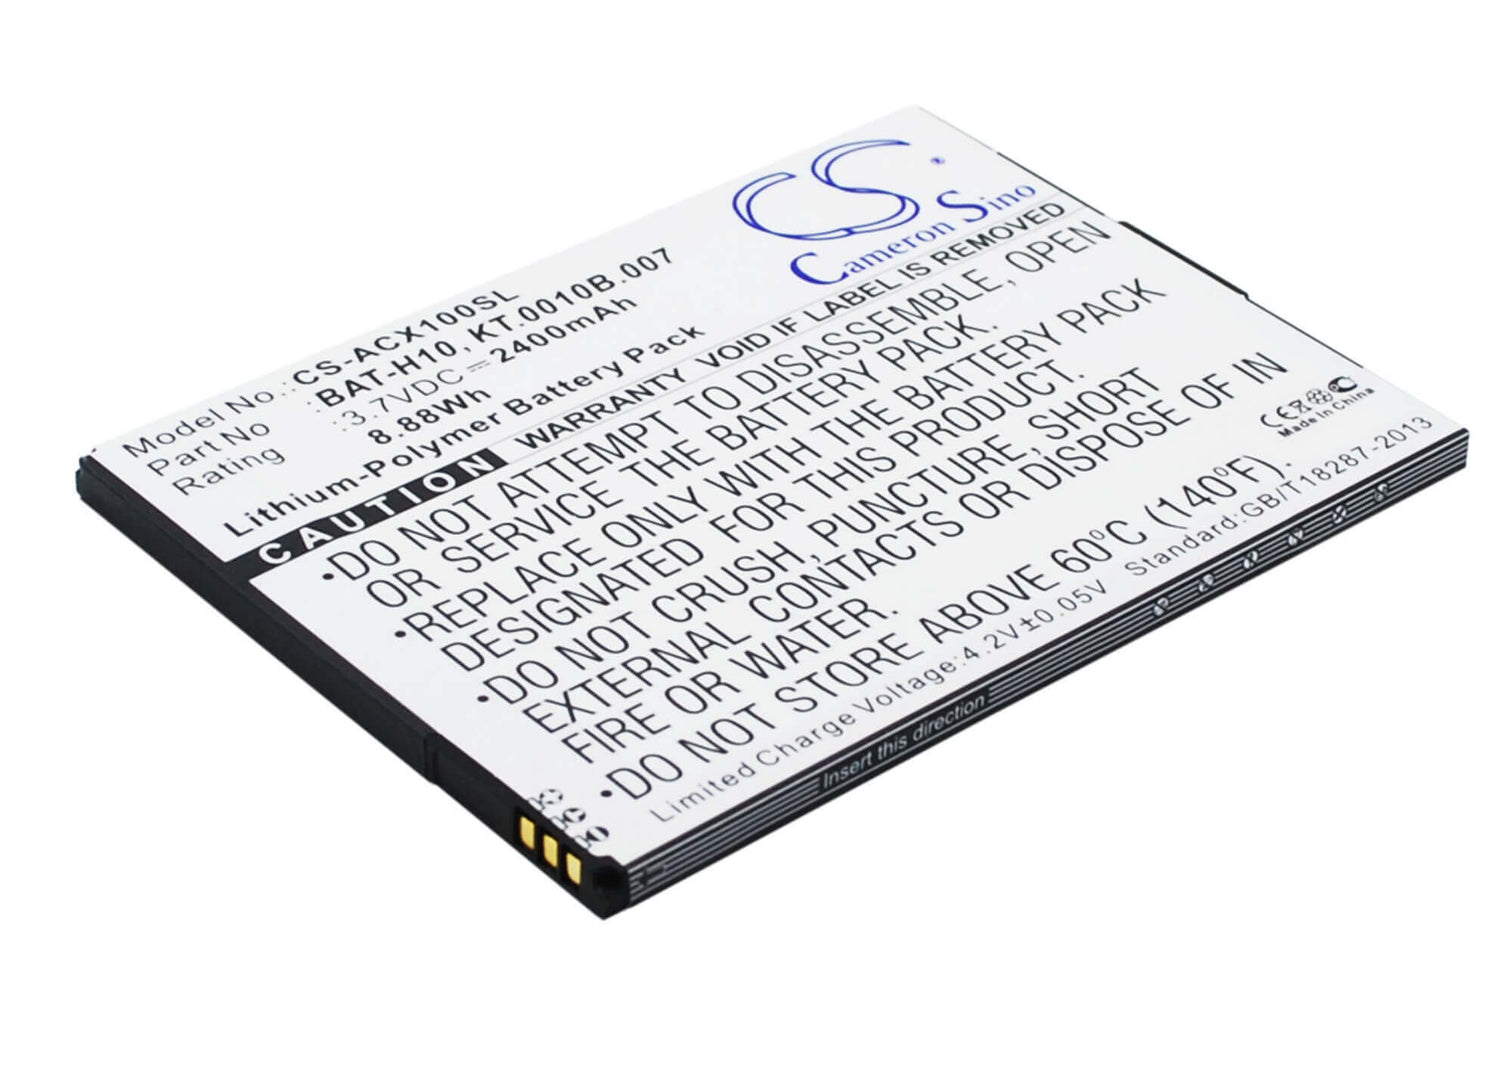 CS®
Cameron Sino
Model No.: CS-ACX100SL
Part No : BAT-H10, KT.0010B.007
Rating : 3.7VDC ⎓ 2400mAh
8.88Wh
Lithium-Polymer Battery Pack
CAUTION WARRANTY VOID IF LABEL IS REMOVED
•DO NOT ATTEMPT TO DISASSEMBLE, OPEN
OR SERVICE THE BATTERY PACK.
•REPLACE ONLY WITH THE BATTERY PACK
DESIGNATED FOR THIS APPLICATION.
•DO NOT CRUSH, PUNCTURE, SHORT
EXTERNAL CONTACTS OR DISPOSE OF IN
FIRE OR WATER.
•DO NOT STORE ABOVE 60°C (140°F).
Limited Charge Voltage:4.2V±0.05V Standard:GB/T18287-2013
CE
Made in China
Insert this direction